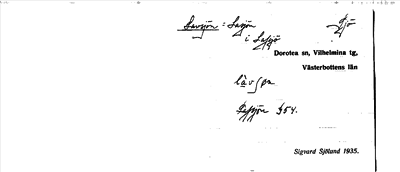 Lavsjön : Lasjön Sjö
i Lafsjö
Dorotea sn, Vilhelmina tg,
Västerbottens län
làvʃøn
§54.
Sigvard Sjölund 1935.